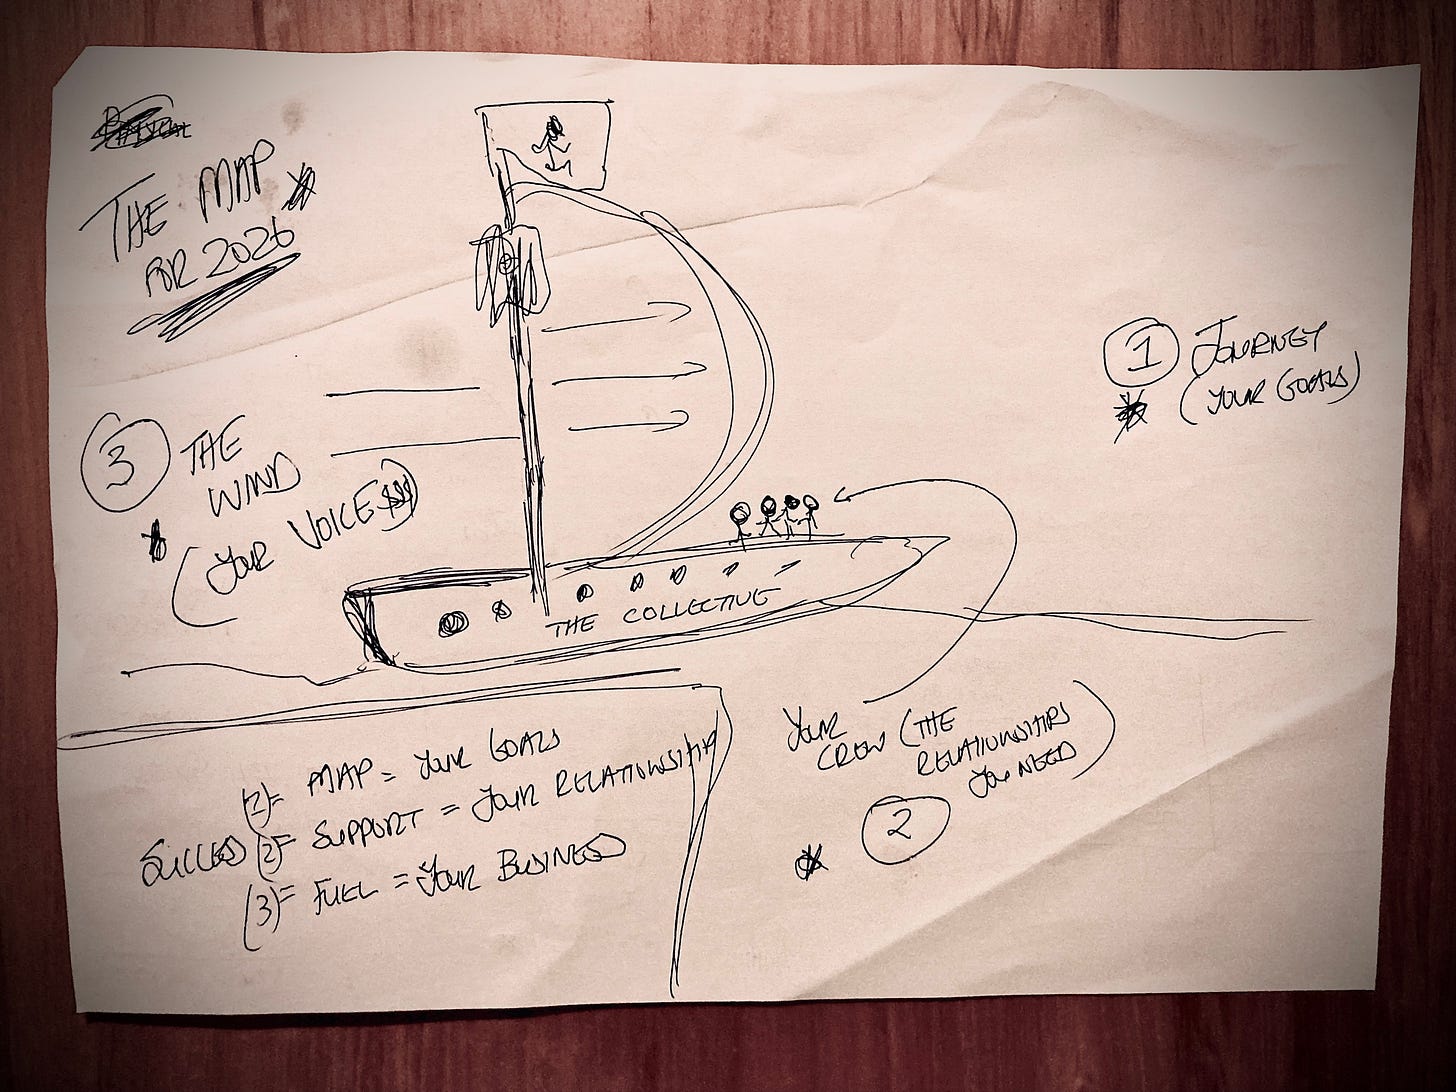 THE MAP
FOR 2026
1 JOURNEY
(YOUR GOALS)
3 THE
WIND
(YOUR VOICE)
THE COLLECTIVE
YOUR
CREW (THE
RELATIONSHIPS
YOU NEED)
2
MAP = YOUR GOALS
SUCCESS (2)= SUPPORT = YOUR RELATIONSHIP
(3)= FUEL = YOUR BUSINESS